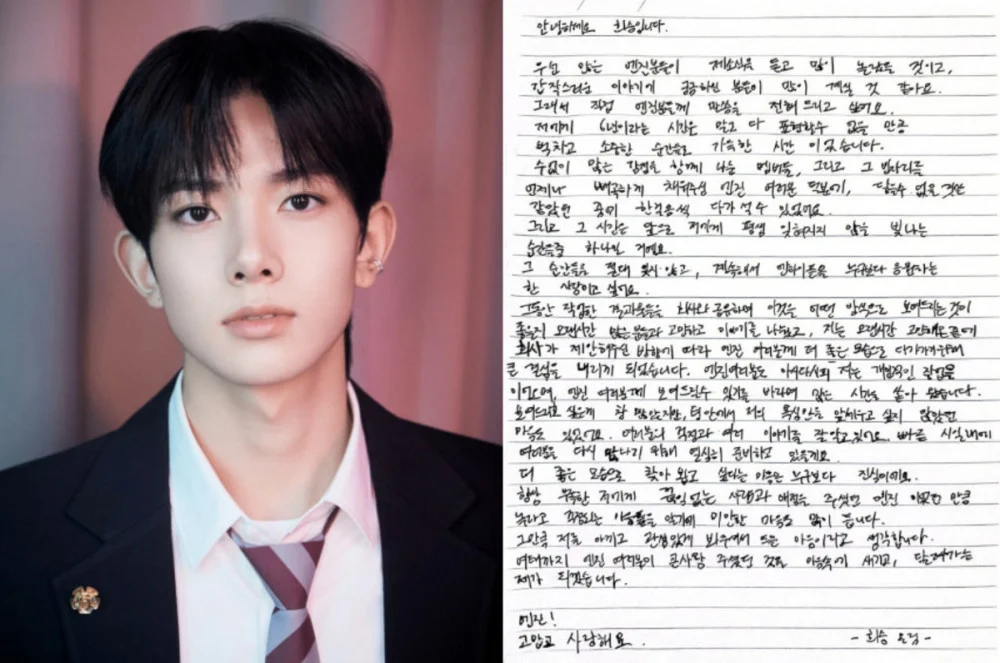 안녕하세요 희승입니다.
우선 많은 엔진분들이 제소식을 듣고 많이 놀랐을 것이고,
갑작스러운 이야기에 궁금하신 분들이 많이 계실 것 같아요.
그래서 직접 엔진분들께 말씀을 전해 드리고 싶어요.
저에게 6년이라는 시간은 말로 다 표현할수 없을 만큼
벅차고 소중한 순간들로 가득한 시간 이었습니다.
수없이 많은 감정을 함께 나눈 멤버들, 그리고 그 빈자리를
언제나 빼곡하게 채워주신 엔진 여러분 덕분에, 닿을수 없을 것만
같았던 꿈에 한걸음씩 다가설 수 있었어요.
그리고 그 시간은 앞으로 저에게 평생 잊혀지지 않을 빛나는
순간들중 하나일 거예요.
그 순간들을 절대 잊지 않고, 계속해서 엔하이픈을 누구보다 응원하는
한 사람이고 싶어요.
그동안 작업한 결과물들을 회사와 공유하며 이것을 어떤 방식으로 보여드리는것이
좋을지 오랜시간 많은분들과 고민하고 이야기를 나눴고, 저는 오랜시간 고민해온끝에
회사가 제안해주신 방향에 따라 엔진 여러분께 더 좋은 모습으로 다가가기위해
큰 결심을 내리게 되었습니다. 엔진여러분도 아시다시피 저는 개인적인 작업물
이 있으며, 엔진 여러분께 보여드릴수 있기를 바라며 많은 시간을 쏟아 왔습니다.
보여드리고 싶은게 참 많았지만, 팀 안에서 저의 욕심만을 앞세우고 싶지 않았던
마음도 있었어요. 여러분의 걱정과 여러 이야기를 잘 알고있어요. 빠른 시일내에
여러분을 다시 만나기 위해 열심히 준비하고 있을게요.
더 좋은 모습으로 찾아 뵙고 싶다는 마음은 누구보다 진심이에요.
항상 부족한 저에게 끊임 없는 사랑과 애정을 주셨던 엔진 이었던 만큼
놀라고 걱정되는 마음들을 알기에 미안한 마음도 많이 듭니다.
그만큼 저를 아끼고 관심있게 봐주셔서 드는 마음이라고 생각합니다.
여태까지 엔진 여러분이 큰사랑 주셨던 것을 마음속에 새기고, 달려가는
제가 되겠습니다.
엔진!
고맙고 사랑해요.
- 희승 올림 -